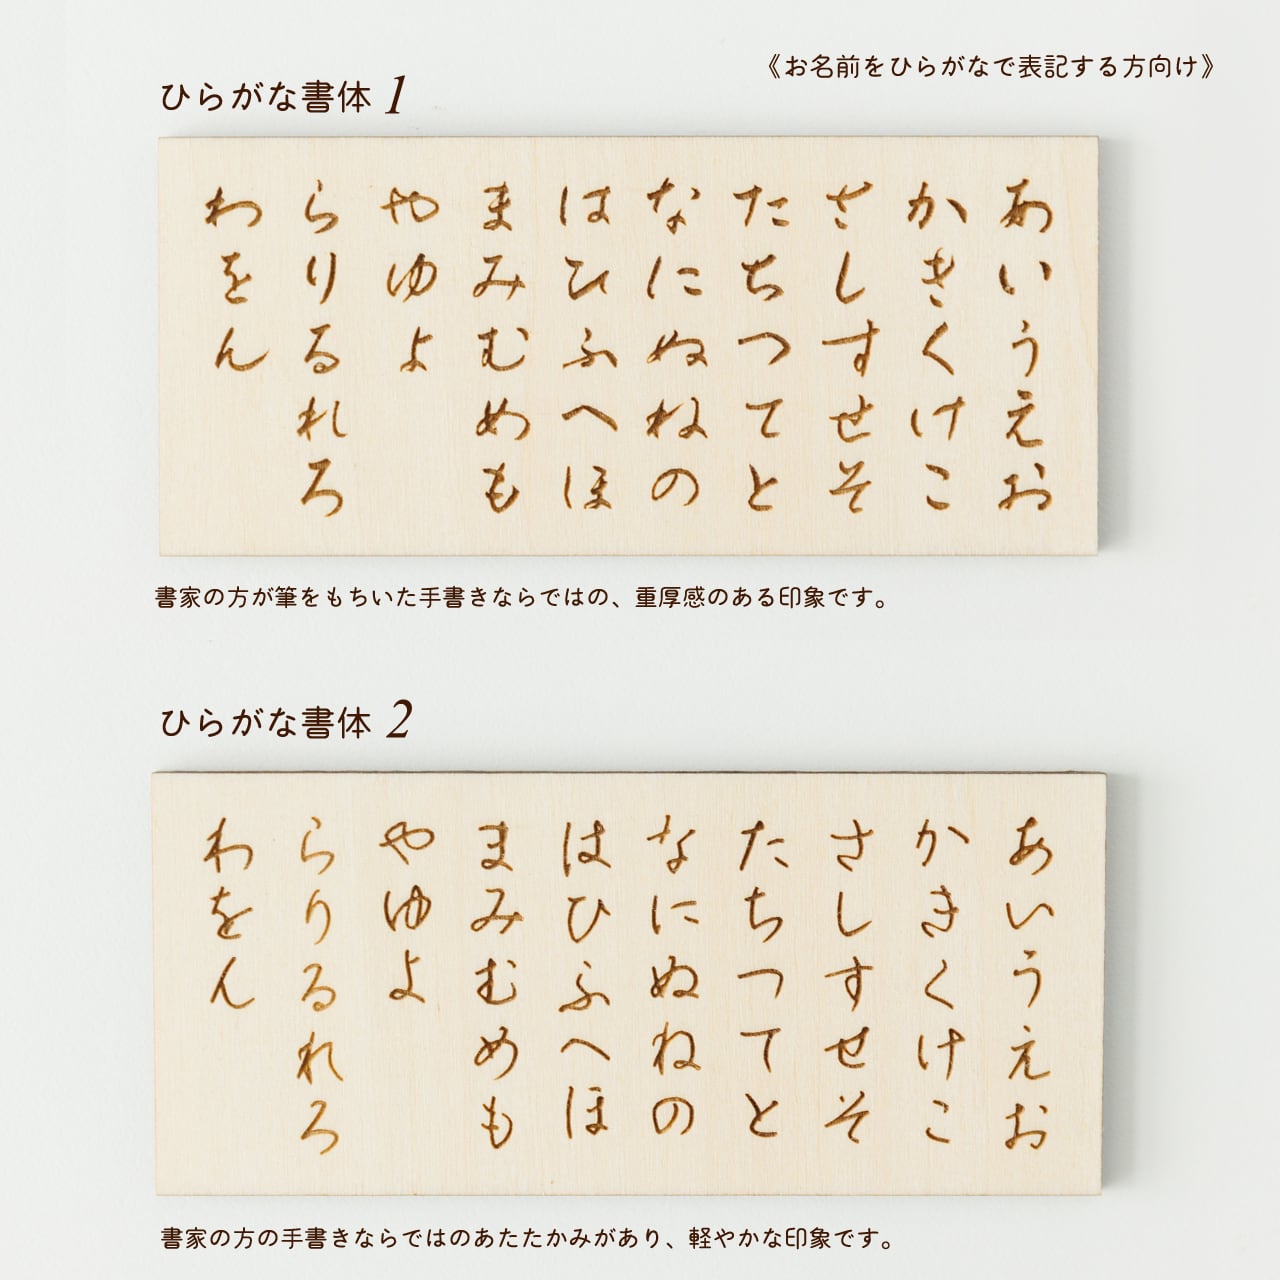 《お名前をひらがなで表記する方向け》
ひらがな書体 1
あいうえお
かきくけこ
さしすせそ
たちつてと
なにぬねの
はひふへほ
まみむめも
やゆよ
らりるれろ
わをん
書家の方が筆をもちいた手書きならではの、重厚感のある印象です。
ひらがな書体 2
あいうえお
かきくけこ
さしすせそ
たちつてと
なにぬねの
はひふへほ
まみむめも
やゆよ
らりるれろ
わをん
書家の方の手書きならではのあたたかみがあり、軽やかな印象です。